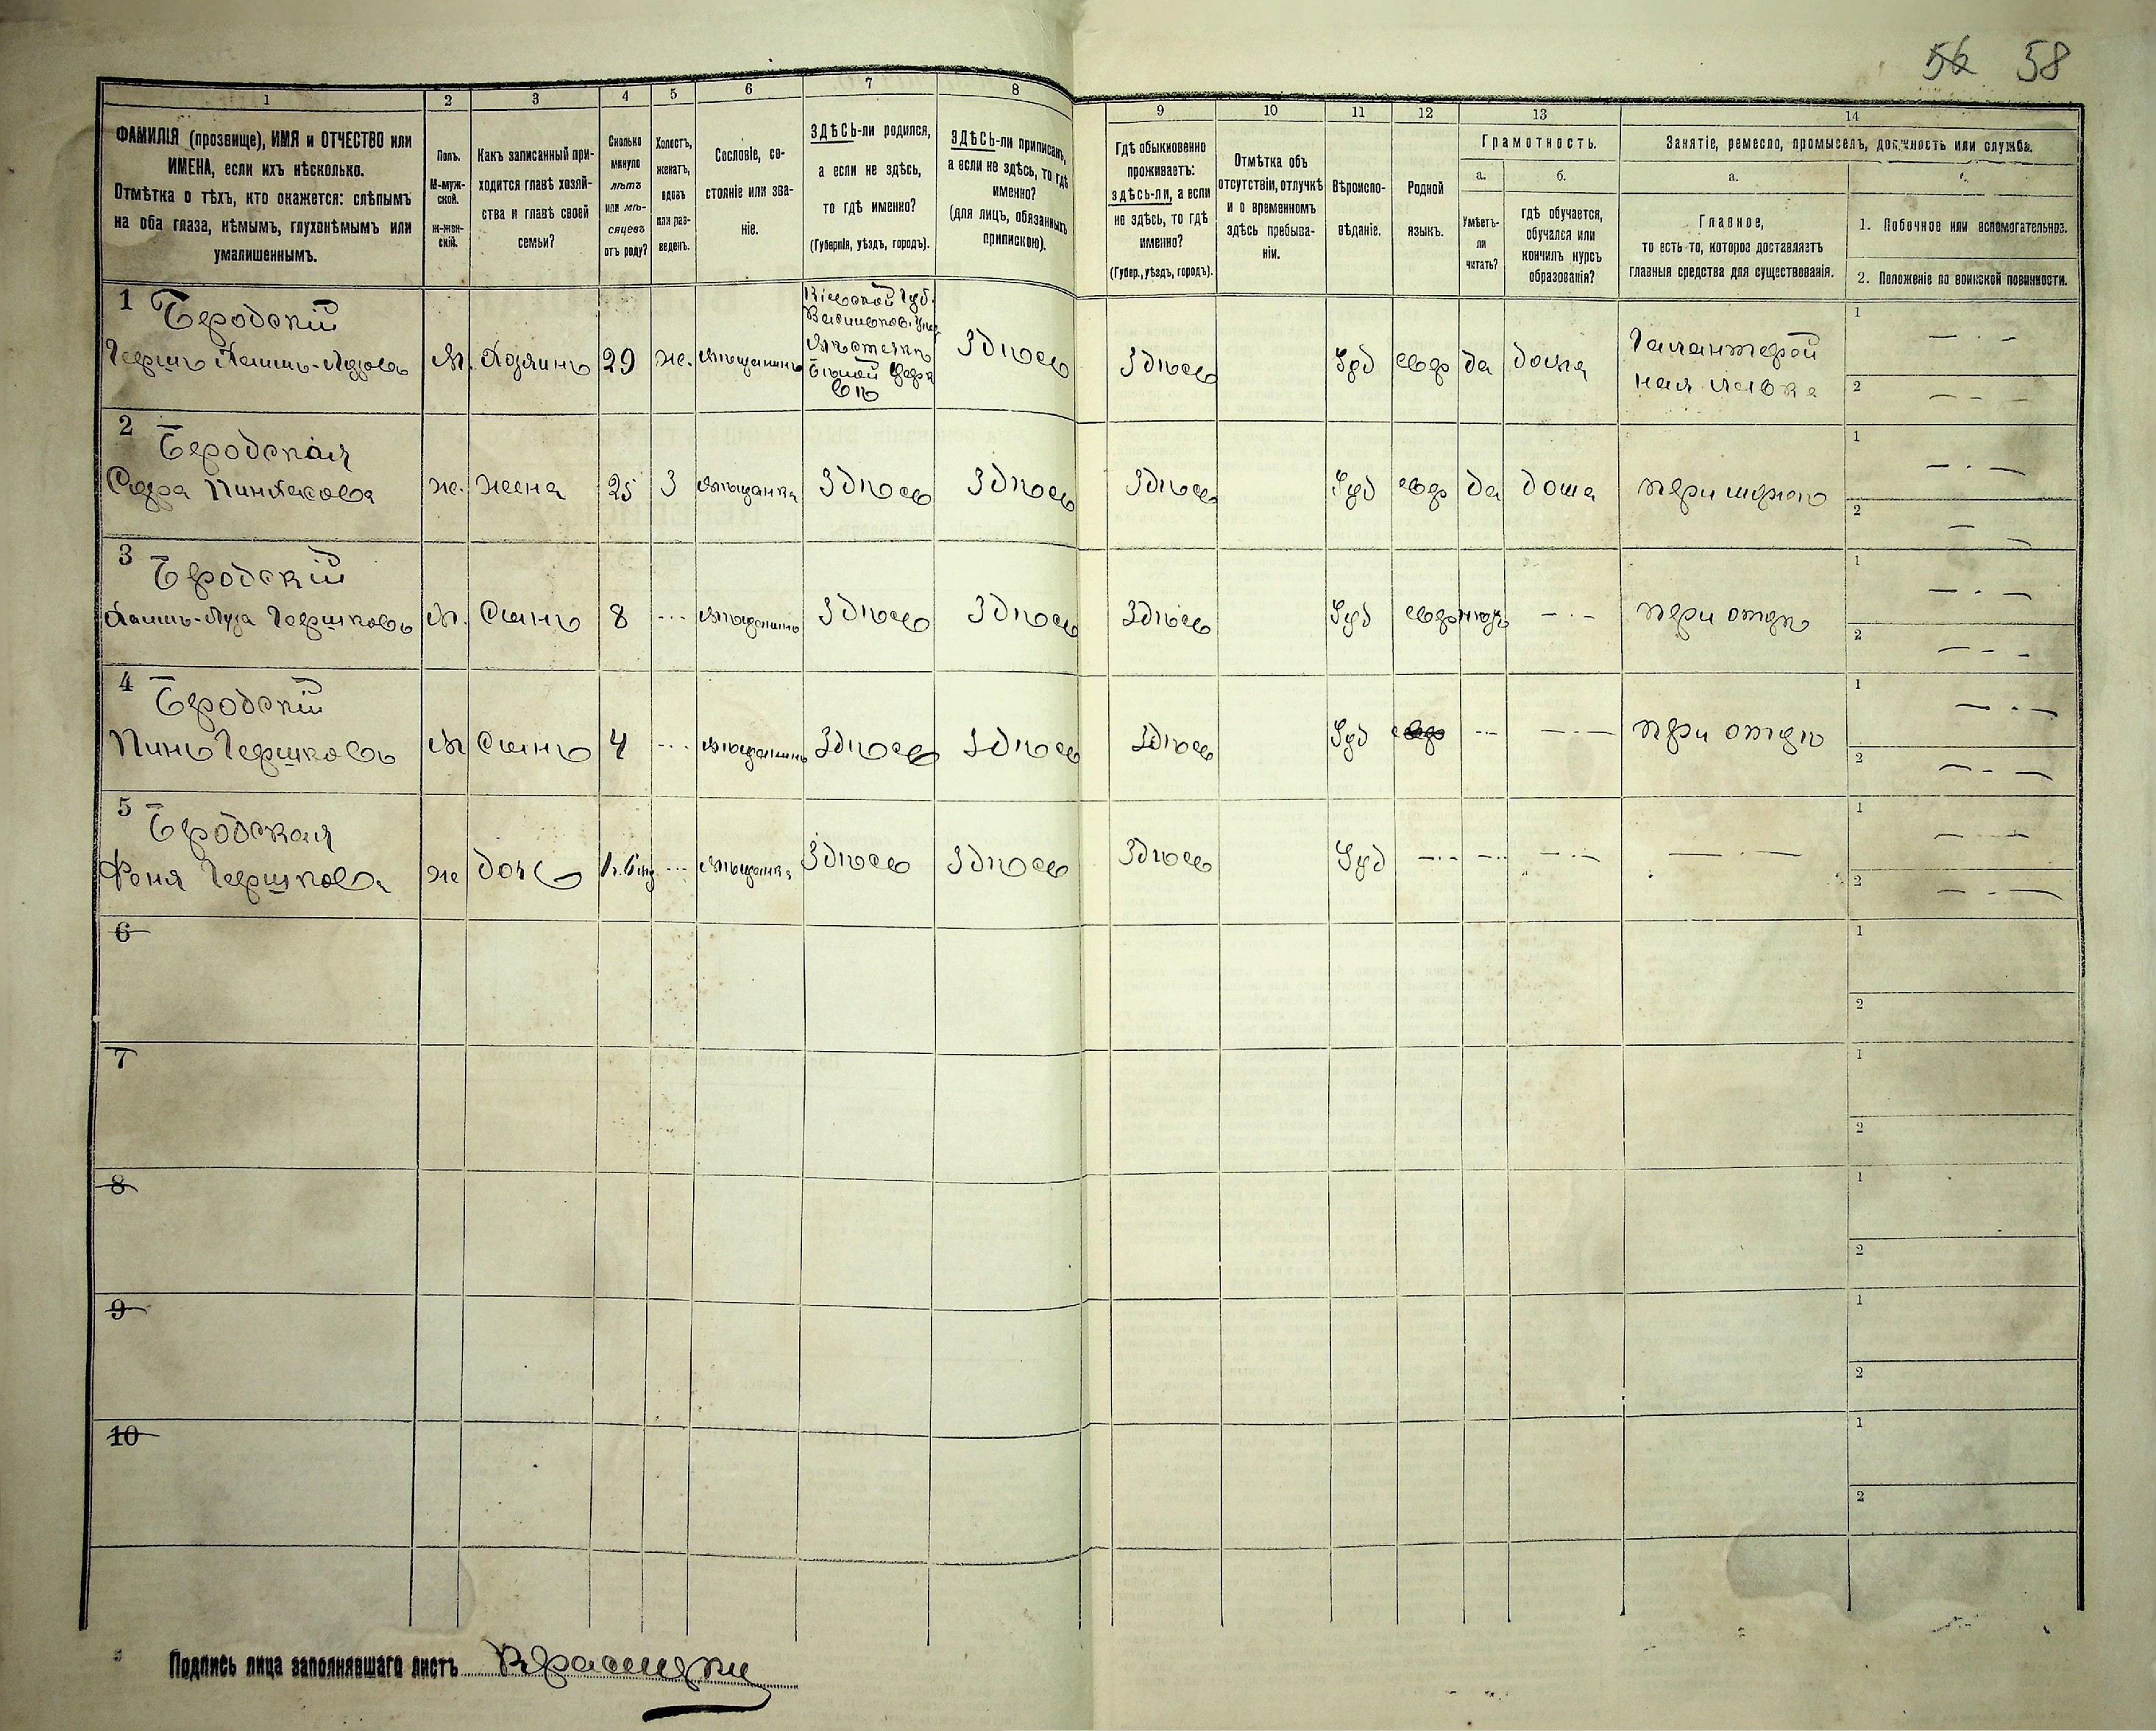 56 58
1 2 3 4 5 6 7 8 9 10 11 12 13 14
ФАМИЛІЯ (прозвище), ИМЯ и ОТЧЕСТВО или
ИМЕНА, если ихъ нѣсколько.
Отмѣтка о тѣхъ, кто окажется: слѣпымъ
на оба глаза, нѣмымъ, глухонѣмымъ или
умалишеннымъ.
Полъ.
М-муж-
ской.
Ж-жен-
скій.
Какъ записанный при-
ходится главѣ хозяй-
ства и главѣ своей
семьи?
Сколько
минуло
лѣтъ
или мѣ-
сяцевъ
отъ роду?
Холостъ,
женатъ,
вдовъ
или раз-
веденъ.
Сословіе, со-
стояніе или зва-
ніе.
ЗДѢСЬ-ли родился,
а если не здѣсь,
то гдѣ именно?
(Губернія, уѣздъ, городъ).
ЗДѢСЬ-ли приписанъ,
а если не здѣсь, то гдѣ
именно?
(для лицъ, обязанныхъ
припискою).
Гдѣ обыкновенно
проживаетъ:
здѣсь-ли, а если
не здѣсь, то гдѣ
именно?
(Губер., уѣздъ, городъ).
Отмѣтка объ
отсутствіи, отлучкѣ
и о временномъ
здѣсь пребыва-
ніи.
Вѣроиспо-
вѣданіе.
Родной
языкъ.
Грамотность.
а.
Умѣетъ-
ли
читать?
б.
гдѣ обучается,
обучался или
кончилъ курсъ
образованія?
Занятіе, ремесло, промыселъ, должность или служба.
а.
Главное,
то есть то, которое доставляетъ
главныя средства для существованія.
1. Побочное или вспомогательное.
2. Положеніе по воинской повинности.
1 Бродскій
Гершъ Хаимъ-Лузовъ М. Хозяинъ 29 ж. мѣщанинъ
Кіевской Губ.
Васильков. Уѣз.
Мѣстечкѣ
Бѣлой Церк
вѣ
Здѣсь Здѣсь Іуд евр да дома
Галантерей
ная лавка
1 — . -
2 — - -
2 Бродская
Сура Пинхасова ж. жена 25 З мѣщанка Здѣсь Здѣсь Здѣсь Іуд евр да дома при мужѣ
1 — . —
2 — —
3 Бродскій
Хаимъ-Луза Гершковъ М. Сынъ 8 --- мѣщанинъ Здѣсь Здѣсь Здѣсь Іуд евр — . - при отцѣ
1 — . —
2 — - -
4 Бродскій
Пинь Гершковъ М Сынъ 4 --- мѣщанинъ Здѣсь Здѣсь Здѣсь Іуд евр --- — . — при отцѣ
1 — . —
2 — - —
5 Бродская
Феня Гершкова ж дочь --- мѣщанка Здѣсь Здѣсь Здѣсь Іуд — . - — . - — . — — . —
1 — . —
2 — . —
6
1
2
7
1
2
8
1
2
9
1
2
10
1
2
Подпись лица заполнявшаго листъ